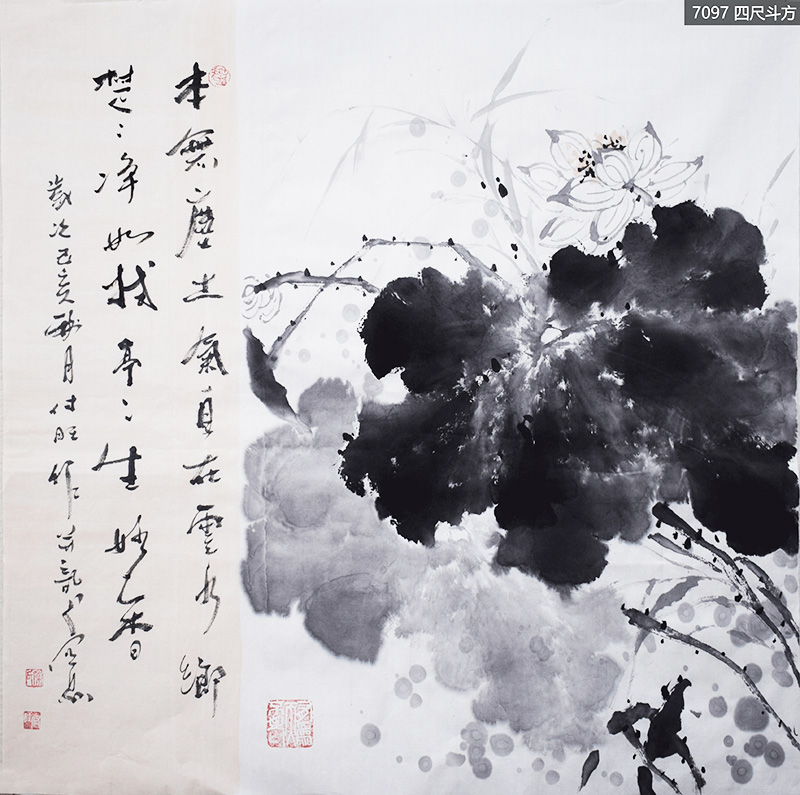 7097 四尺斗方
本無塵土氣自在雲水鄉
楚〻净如拭亭〻生妙香
歲次己亥秋月付旺作并記